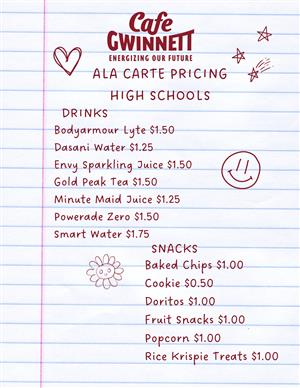 Cafe
GWINNETT
ENERGIZING OUR FUTURE
ALA CARTE PRICING
HIGH SCHOOLS
DRINKS
Bodyarmour Lyte $1.50
Dasani Water $1.25
Envy Sparkling Juice $1.50
Gold Peak Tea $1.50
Minute Maid Juice $1.25
Powerade Zero $1.50
Smart Water $1.75
SNACKS
Baked Chips $1.00
Cookie $0.50
Doritos $1.00
Fruit Snacks $1.00
Popcorn $1.00
Rice Krispie Treats $1.00